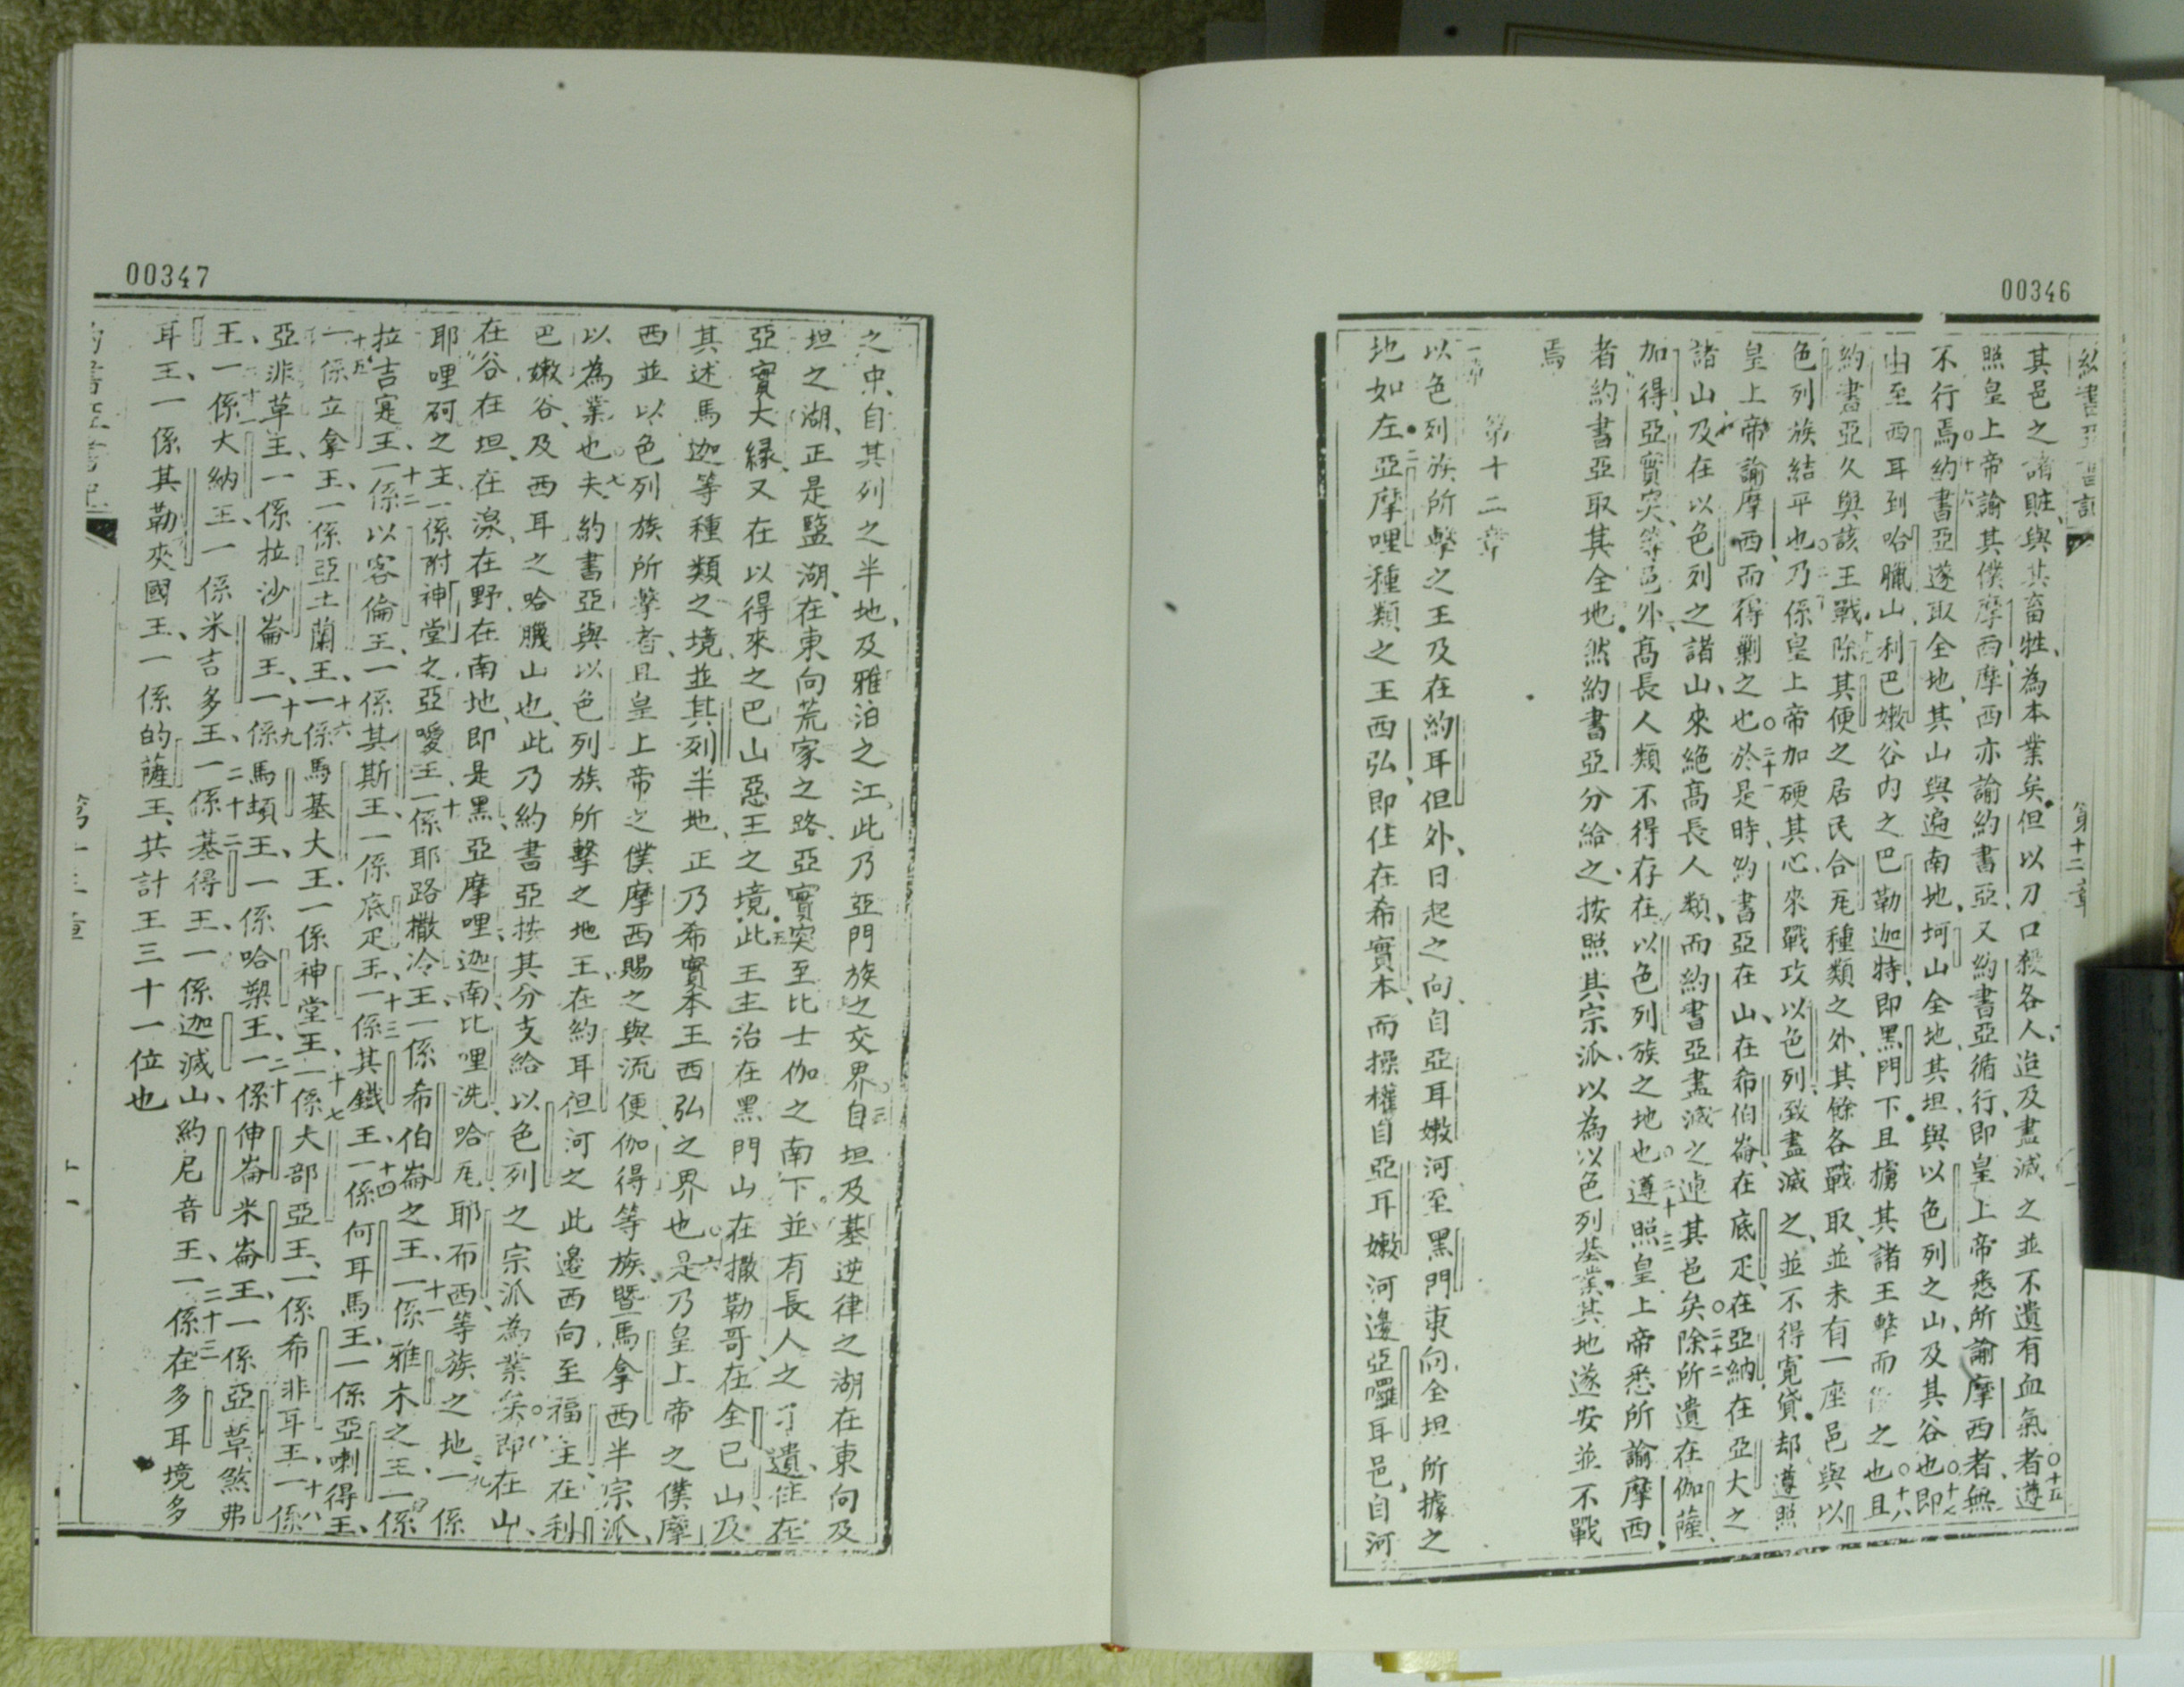 00346
約書亞書記
第十二章
其邑之諸賍與其畜牲為本業矣但以刀口殺各人迨及盡滅之並不遺有血氣者○十五遵
照皇上帝諭其僕摩西摩西亦諭約書亞又約書亞循行即皇上帝悉所諭摩西者無
不行焉○十六約書亞遂取全地其山與遍南地坷山全地其坦與以色列之山及其谷也○十七即
由至西耳到哈臘山利巴嫩谷内之巴勒迦特即黑門下且擄其諸王擊而之也○十八且
約書亞久與該王戰除其便之居民合㡳種類之外其餘各戰取並未有一座邑與以
色列族結平也乃係皇上帝加硬其心來戰攻以色列致盡滅之並不得寬貸却遵照
皇上帝諭摩西而得剿之也○二十一於是時約書亞在山在希伯崙在底疋在亞納在亞大之
諸山及在以色列之諸山來絶高長人類而約書亞盡滅之連其邑矣○二十二除所遺在伽薩
加得亞實突等邑外高長人類不得存在以色列族之地也○二十三遵照皇上帝悉所諭摩西
者約書亞取其全地然約書亞分給之按照其宗派以為以色列基業其地遂安並不戰
焉
第十二章
一節
以色列族所擊之王及在約耳但外日起之向自亞耳嫩河至黑門東向全坦所據之
地如左二亞摩哩種類之王西弘即住在希實本而操權自亞耳嫩河邊亞囉耳邑自河
00347
之中自其列之半地及雅泊之江此乃亞門族之交界○三自坦及基逆律之湖在東向及
坦之湖正是鹽湖在東向荒家之路亞實突至比士伽之南下並有長人之了遺住在
亞實大緣又在以得來之巴山惡王之境五此王主治在黑門山在撒勒哥在全巴山及
其述馬迦等種類之境並其列半地正乃希實本王西弘之界也○六是乃皇上帝之僕摩
西並以色列族所擊者且皇上帝之僕摩西賜之與流便伽得等族暨馬拿西半宗派
以為業也○七夫約書亞與以色列族所擊之地王在約耳但河之此邊西向至福王在利
巴嫩谷及西耳之哈臘山也此乃約書亞按其分支給以色列之宗派為業矣○八即在山
在谷在坦在湶在野在南地即是黑亞摩哩迦南比哩洗哈㡳耶布西等族之地九一係
耶哩砢之王一係附神堂之亞噯王十一係耶路撒冷王一係希伯崙之王十一一係雅木之王一係
拉吉寔王十二一係以客倫王一係其斯王一係底疋王十三一係其鐵王十四一係何耳馬王一係亞喇得王
十五一係立拿王一係亞土蘭王十六一係馬基大王一係神堂王十七一係大部亞王一係希非耳王十八一係
亞非草王一係拉沙崙王十九一係馬頓王一係哈槊王二十一係伸崙米崙王一係亞草煞弗
王二十一一係大納王一係米吉多王二十二一係基得王一係迦滅山約尼音王二十三一係在多耳境多
耳王一係其勒夾國王一係的薩王共計王三十一位也
約書亞書記